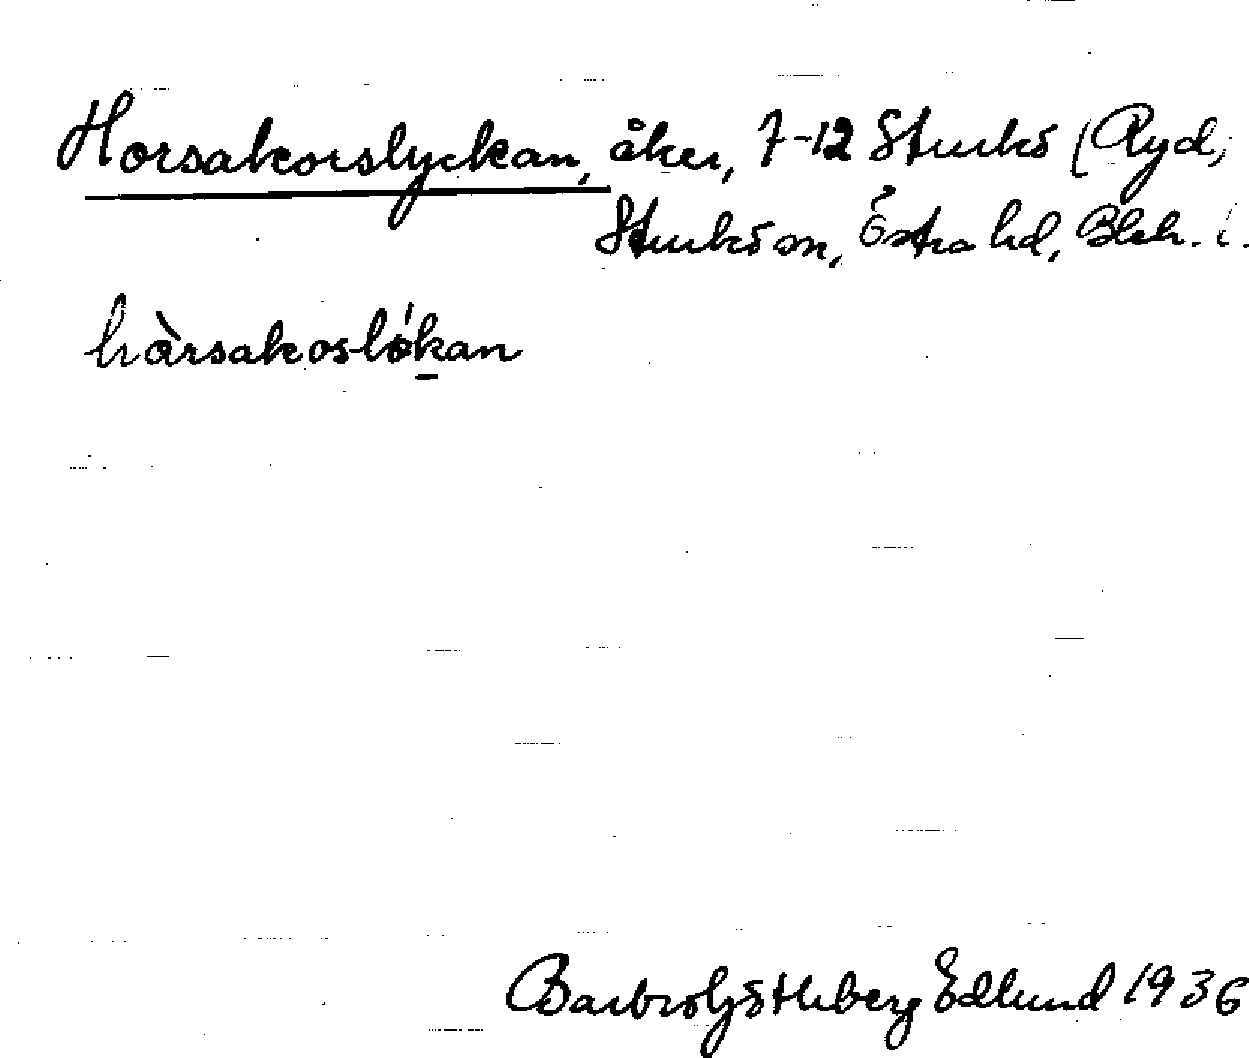 Horsakorslyckan, åker, 7-12 Sturkö (Ryd,
Sturkö sn, Östra hd, Blek. l.
hàrsakoslókan
Barbro Göthberg Edlund 1936